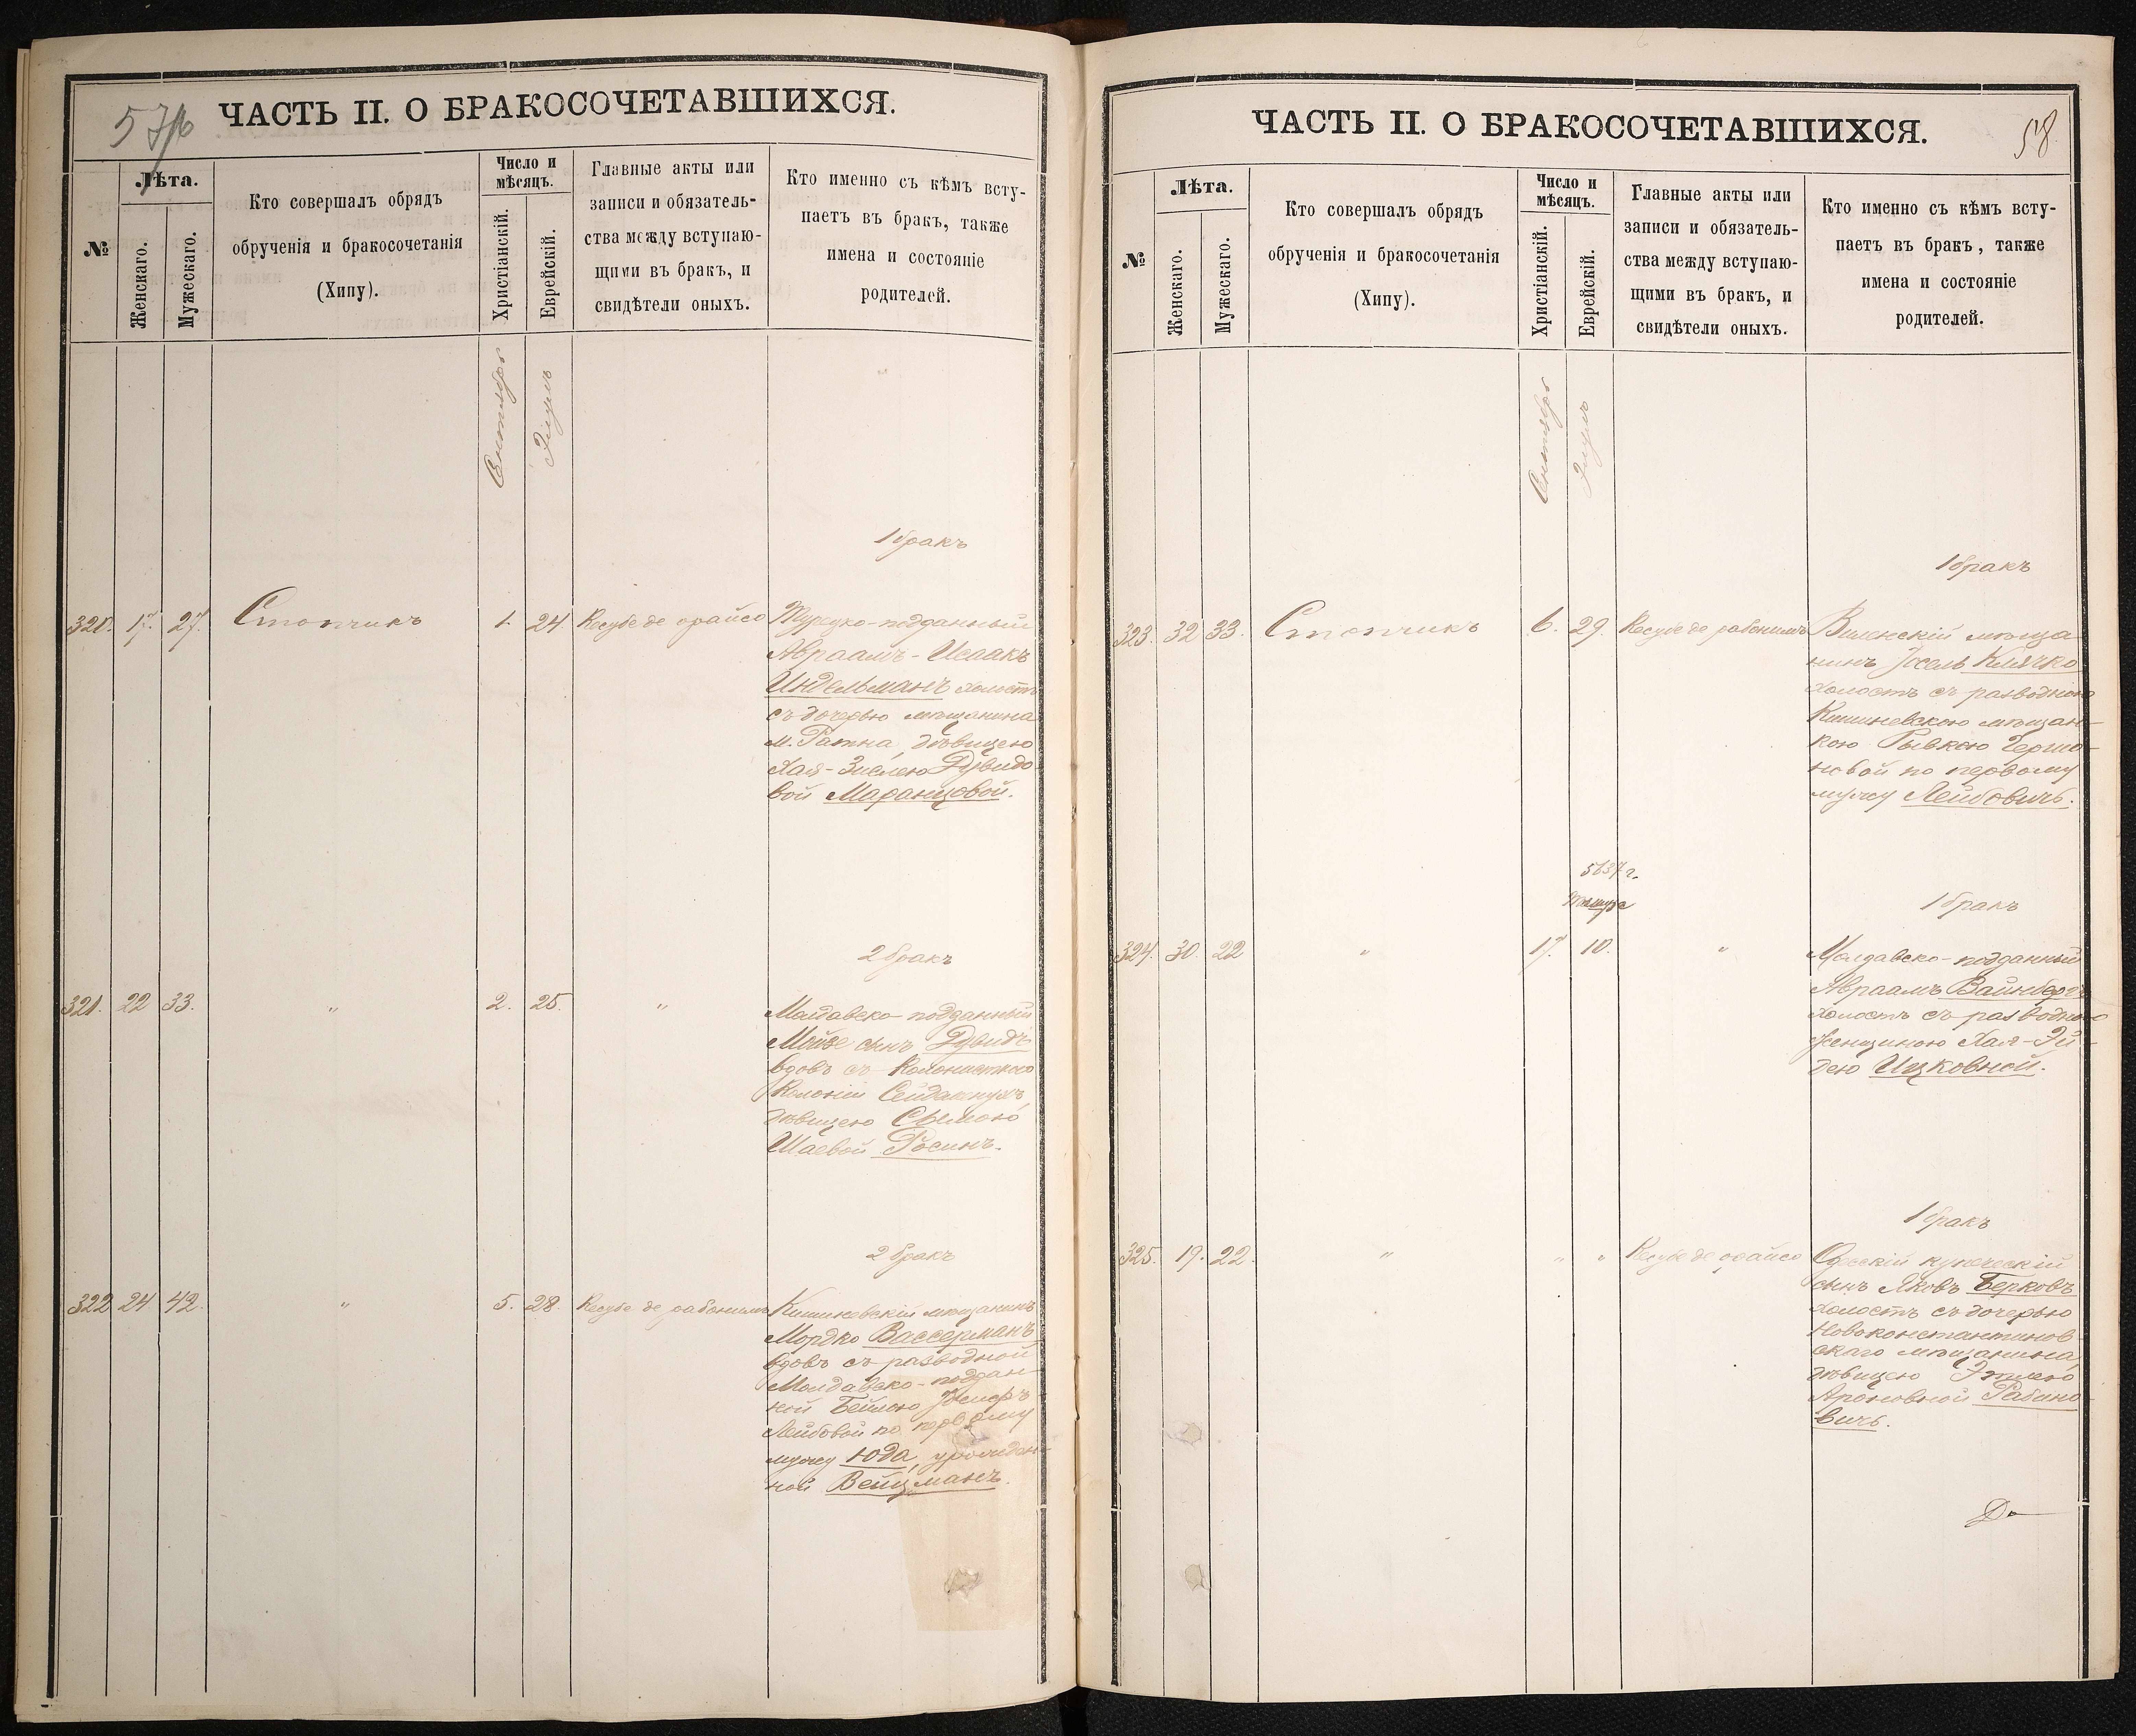 57/б
ЧАСТЬ II. О БРАКОСОЧЕТАВШИХСЯ.
№
Лѣта.
Женскаго.
Мужескаго.
Кто совершалъ обрядъ
обрученія и бракосочетанія
(Хипу).
Число и
мѣсяцъ.
Христіанскій.
Еврейскій.
Главные акты или
записи и обязатель-
ства между вступаю-
щими въ бракъ, и
свидѣтели оныхъ.
Кто именно съ кѣмъ всту-
паетъ въ бракъ, также
имена и состояніе
родителей.
Сентябрь
Элулъ
1 бракъ
320. 17. 27. Стопчикъ 1. 24. Кесубе де орайсо
Турецко-подданный
Авраамъ-Исаакъ
Индельманъ холостъ
съ дочерью мѣщанина
м. Ратна, дѣвицею
Хая-Зислею Дувидо-
вой Маранцовой.
2 бракъ
321. 22 33. " 2. 25. "
Молдавско-подданный
Мойзе сынъ Дувидъ
вдовъ съ колонисткою
Колоніи
дѣвицею
Шаевой Росинъ.
2 бракъ
322 24 42. " 5. 28. Кесубе де рабонимъ
Кишиневскій мѣщанинъ
Мордко Вассерманъ
вдовъ съ разводной
Молдавско-поддан-
ной Бейлею
Лейбовой по первому
мужу Юда, урожден-
ной Вейцманъ.
ЧАСТЬ II. О БРАКОСОЧЕТАВШИХСЯ.
58
№
Лѣта.
Женскаго.
Мужескаго.
Кто совершалъ обрядъ
обрученія и бракосочетанія
(Хипу).
Число и
мѣсяцъ.
Христіанскій.
Еврейскій.
Главные акты или
записи и обязатель-
ства между вступаю-
щими въ бракъ, и
свидѣтели оныхъ.
Кто именно съ кѣмъ всту-
паетъ въ бракъ, также
имена и состояніе
родителей.
Сентябрь
Элулъ
1 бракъ
323. 32 33. Стопчикъ 6. 29. Кесубе де рабонимъ
Виленскій мѣща-
нинъ Іосель Клячко
холостъ съ разводною
Кишиневскою мѣщан-
кою Рывкою Гершо-
новой по первому
мужу Лейбовичъ.
5637 г.
Тишре
1 бракъ
324. 30. 22 " 17. 10. "
Молдавско-подданный
Авраамъ Вайнбергъ
холостъ съ разводною
женщиною Хая-Эй-
дею Ицковной.
1 бракъ
325. 19. 22. " " " Кесубе де орайсо
Одесскій купеческій
сынъ Яковъ Берковъ
холостъ съ дочерью
Новоконстантинов-
скаго мѣщанина,
дѣвицею Этлею
Ароновной Рабино-
вичъ.